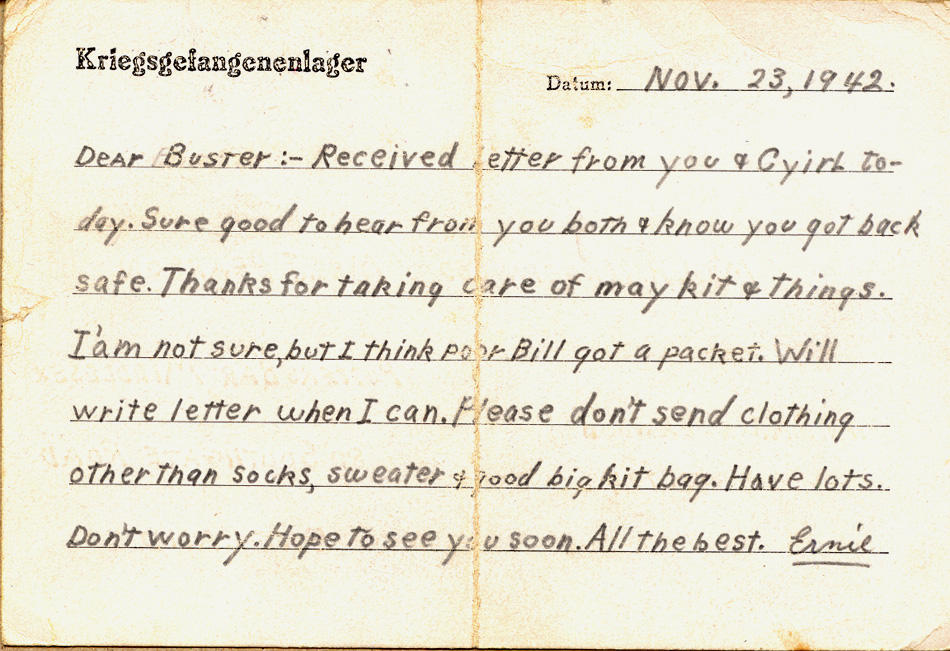 Kriegsgefangenenlager
Datum: Nov. 23, 1942.
Dear Buster :- Received letter from you & Cyirl to-
day. Sure good to hear from you both & know you got back
safe. Thanks for taking care of may kit & things.
I'am not sure, but I think poor Bill got a packet. Will
write letter when I can. Please don't send clothing
other than socks, sweater & good big kit bag. Have lots.
Don't worry. Hope to see you soon. All the best. Ernie